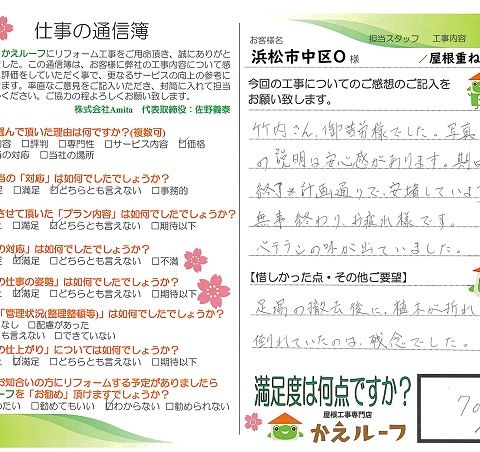 仕事の通信簿
かえルーフにリフォーム工事をご用命頂き、誠にありがと
ました。この通信簿は、お客様に工事内容について感
評価をしていただく事で、更なるサービスの向上の参考に
ます。率直なご意見をご記入いただき、封筒に入れて担当
ください。ご協力の程よろしくお願い致します。
株式会社Amita 代表取締役:佐野義泰
選んで頂いた理由は何ですか?(複数可)
内容 □評判 □専門性 □サービス内容 ☑価格
の対応 □当社の場所
当の「対応」は如何でしたでしょうか?
足 □満足 ☑どちらとも言えない □事務的
させて頂いた「プラン内容」は如何でしたでしょうか?
□満足 ☑どちらとも言えない □期待以下
の対応」は如何でしたでしょうか?
☑満足 □どちらとも言えない □不満
の仕事の姿勢」は如何でしたでしょうか?
☑満足 □どちらとも言えない □期待以下
「管理状況(整理整頓等)」は如何でしたでしょうか?
なし □配慮があった
も言えない □できていない
の仕上がり」については如何でしたでしょうか?
☑満足 □どちらとも言えない □期待以下
お知合いの方にリフォームする予定がありましたら
ルーフを「お勧め」頂けますでしょうか?
めたい □勧めてもいい ☑わからない □勧められない
お客様名 担当スタッフ 工事内容
浜松市中区O 様 /屋根重ね
今回の工事についてのご感想のご記入を
お願い致します。
竹内さん、御苦労様でした。写真
の説明は安心感があります。期日
終了も計画通りで、安堵しています
無事終わり、お疲れ様です。
ベテランの味が出ていました。
【惜しかった点・その他ご要望】
足場の撤去後に、植木が折れ
倒れていたのは、残念でした。
満足度は何点ですか?
70
屋根工事専門店
かえルーフ